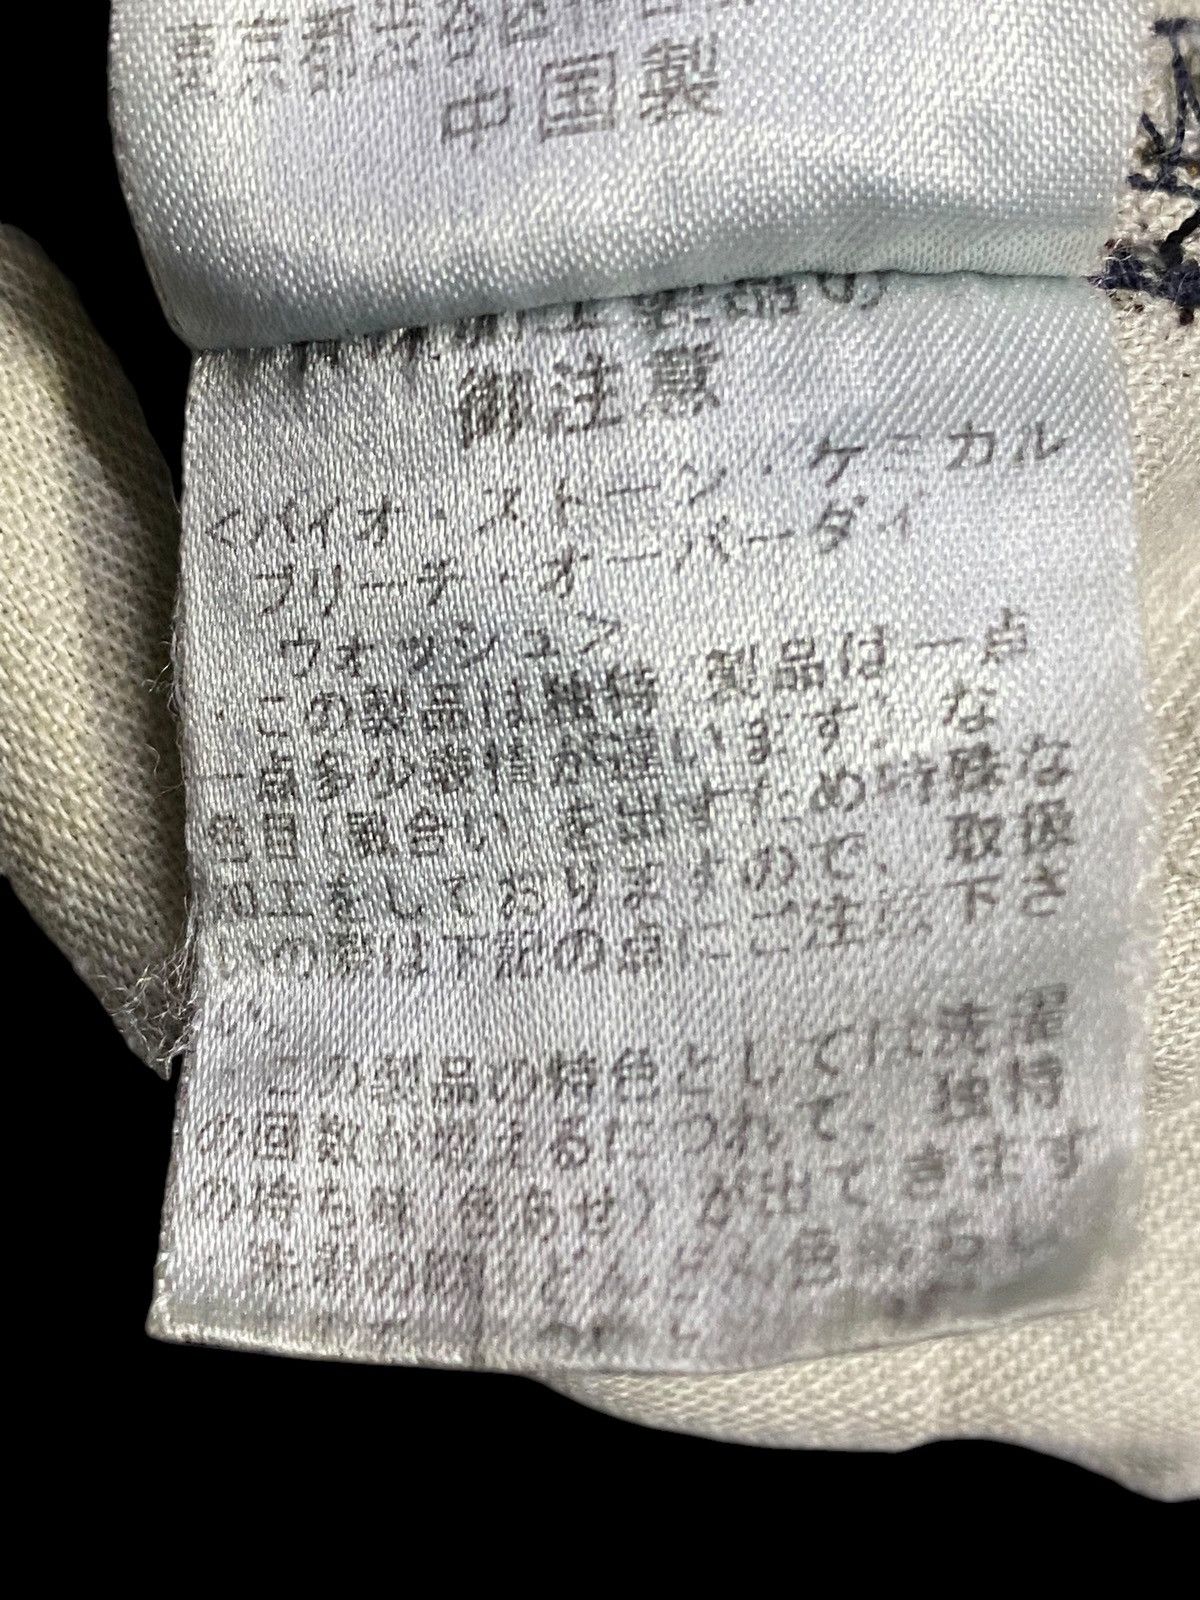 東京都渋谷区
中国製
工製品の
御注意
<バイオ・ストーン・ケミカル
ブリーチ・オーバーダイ
ウォッシュ>
この製品は独特 製品は一点
一点多少表情が違います。な
色目(風合い)を出すため特殊な
加工をしておりますので、取扱
いの際は下記の点にご注意下さ
い。
この製品の特色としては洗濯
の回数が増えるにつれて、独特
の持ち味(色あせ)が出てきます
色